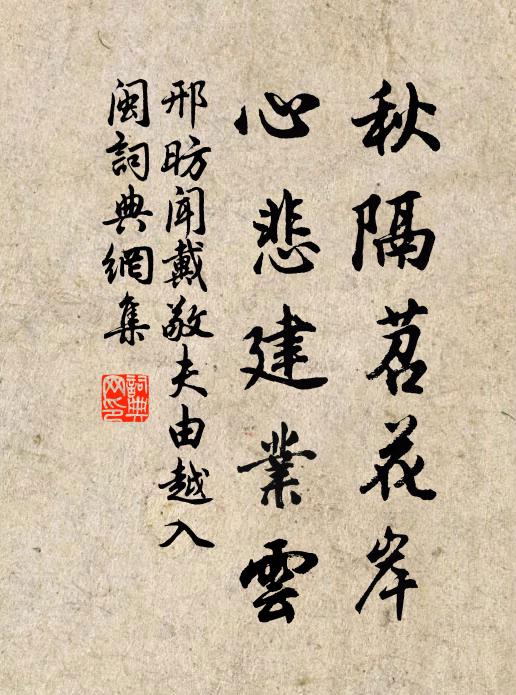 秋隔苕花岸
心悲建業雲
邢昉闻戴敬夫由越入
閩詞典網集
詞典网印